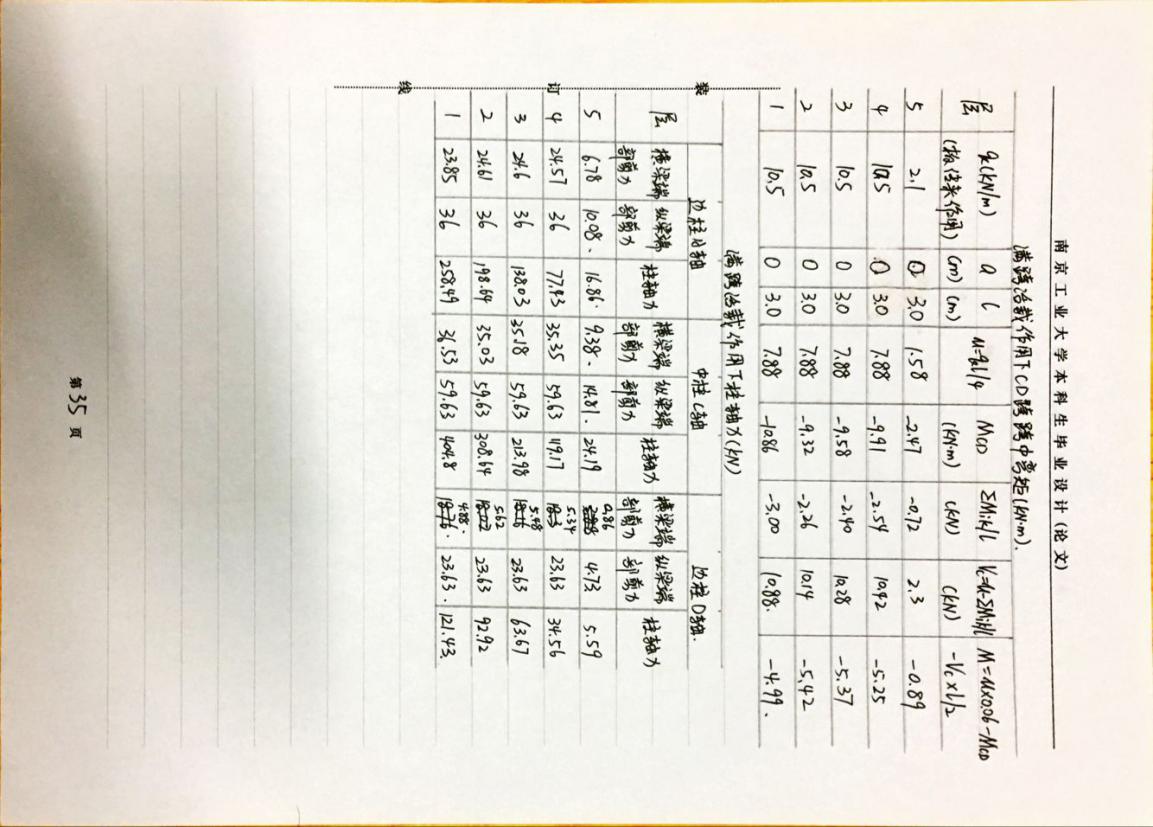 南京工业大学本科生毕业设计(论文)
满跨活载作用下CD跨跨中弯矩(kN·m).
层 q(kN/m) (板传来作用) a (m) l (m) u=ql/4 MCD (kN·m) ΣMik/l (kN) Vc=u-ΣMik/l (kN) M=u×0.06-MCD -Vc×l/2
5 2.1 0 3.0 1.58 -2.47 -0.72 2.3 -0.89
4 10.5 0 3.0 7.88 -9.91 -2.54 10.42 -5.25
3 10.5 0 3.0 7.88 -9.58 -2.40 10.28 -5.37
2 10.5 0 3.0 7.88 -9.32 -2.26 10.14 -5.42
1 10.5 0 3.0 7.88 -10.86 -3.00 10.88. -4.99.
满跨活载作用下柱轴力(kN)
层 边柱A轴 中柱C轴 边柱D轴.
横梁端部剪力 纵梁端部剪力 柱轴力 横梁端部剪力 纵梁端部剪力 柱轴力 横梁端部剪力 纵梁端部剪力 柱轴力
5 6.78 10.08. 16.86. 9.38. 14.81. 24.19 0.86 4.73 5.59
4 24.57 36 77.43 35.35 59.63 119.17 5.34 23.63 34.56
3 24.6 36 138.03 35.18 59.63 213.98 5.48 23.63 63.67
2 24.61 36 198.64 35.03 59.63 308.64 5.62 23.63 92.92
1 23.85 36 258.49 36.53 59.63 404.8 4.88. 23.63. 121.43.
装 订 线
第 35 页